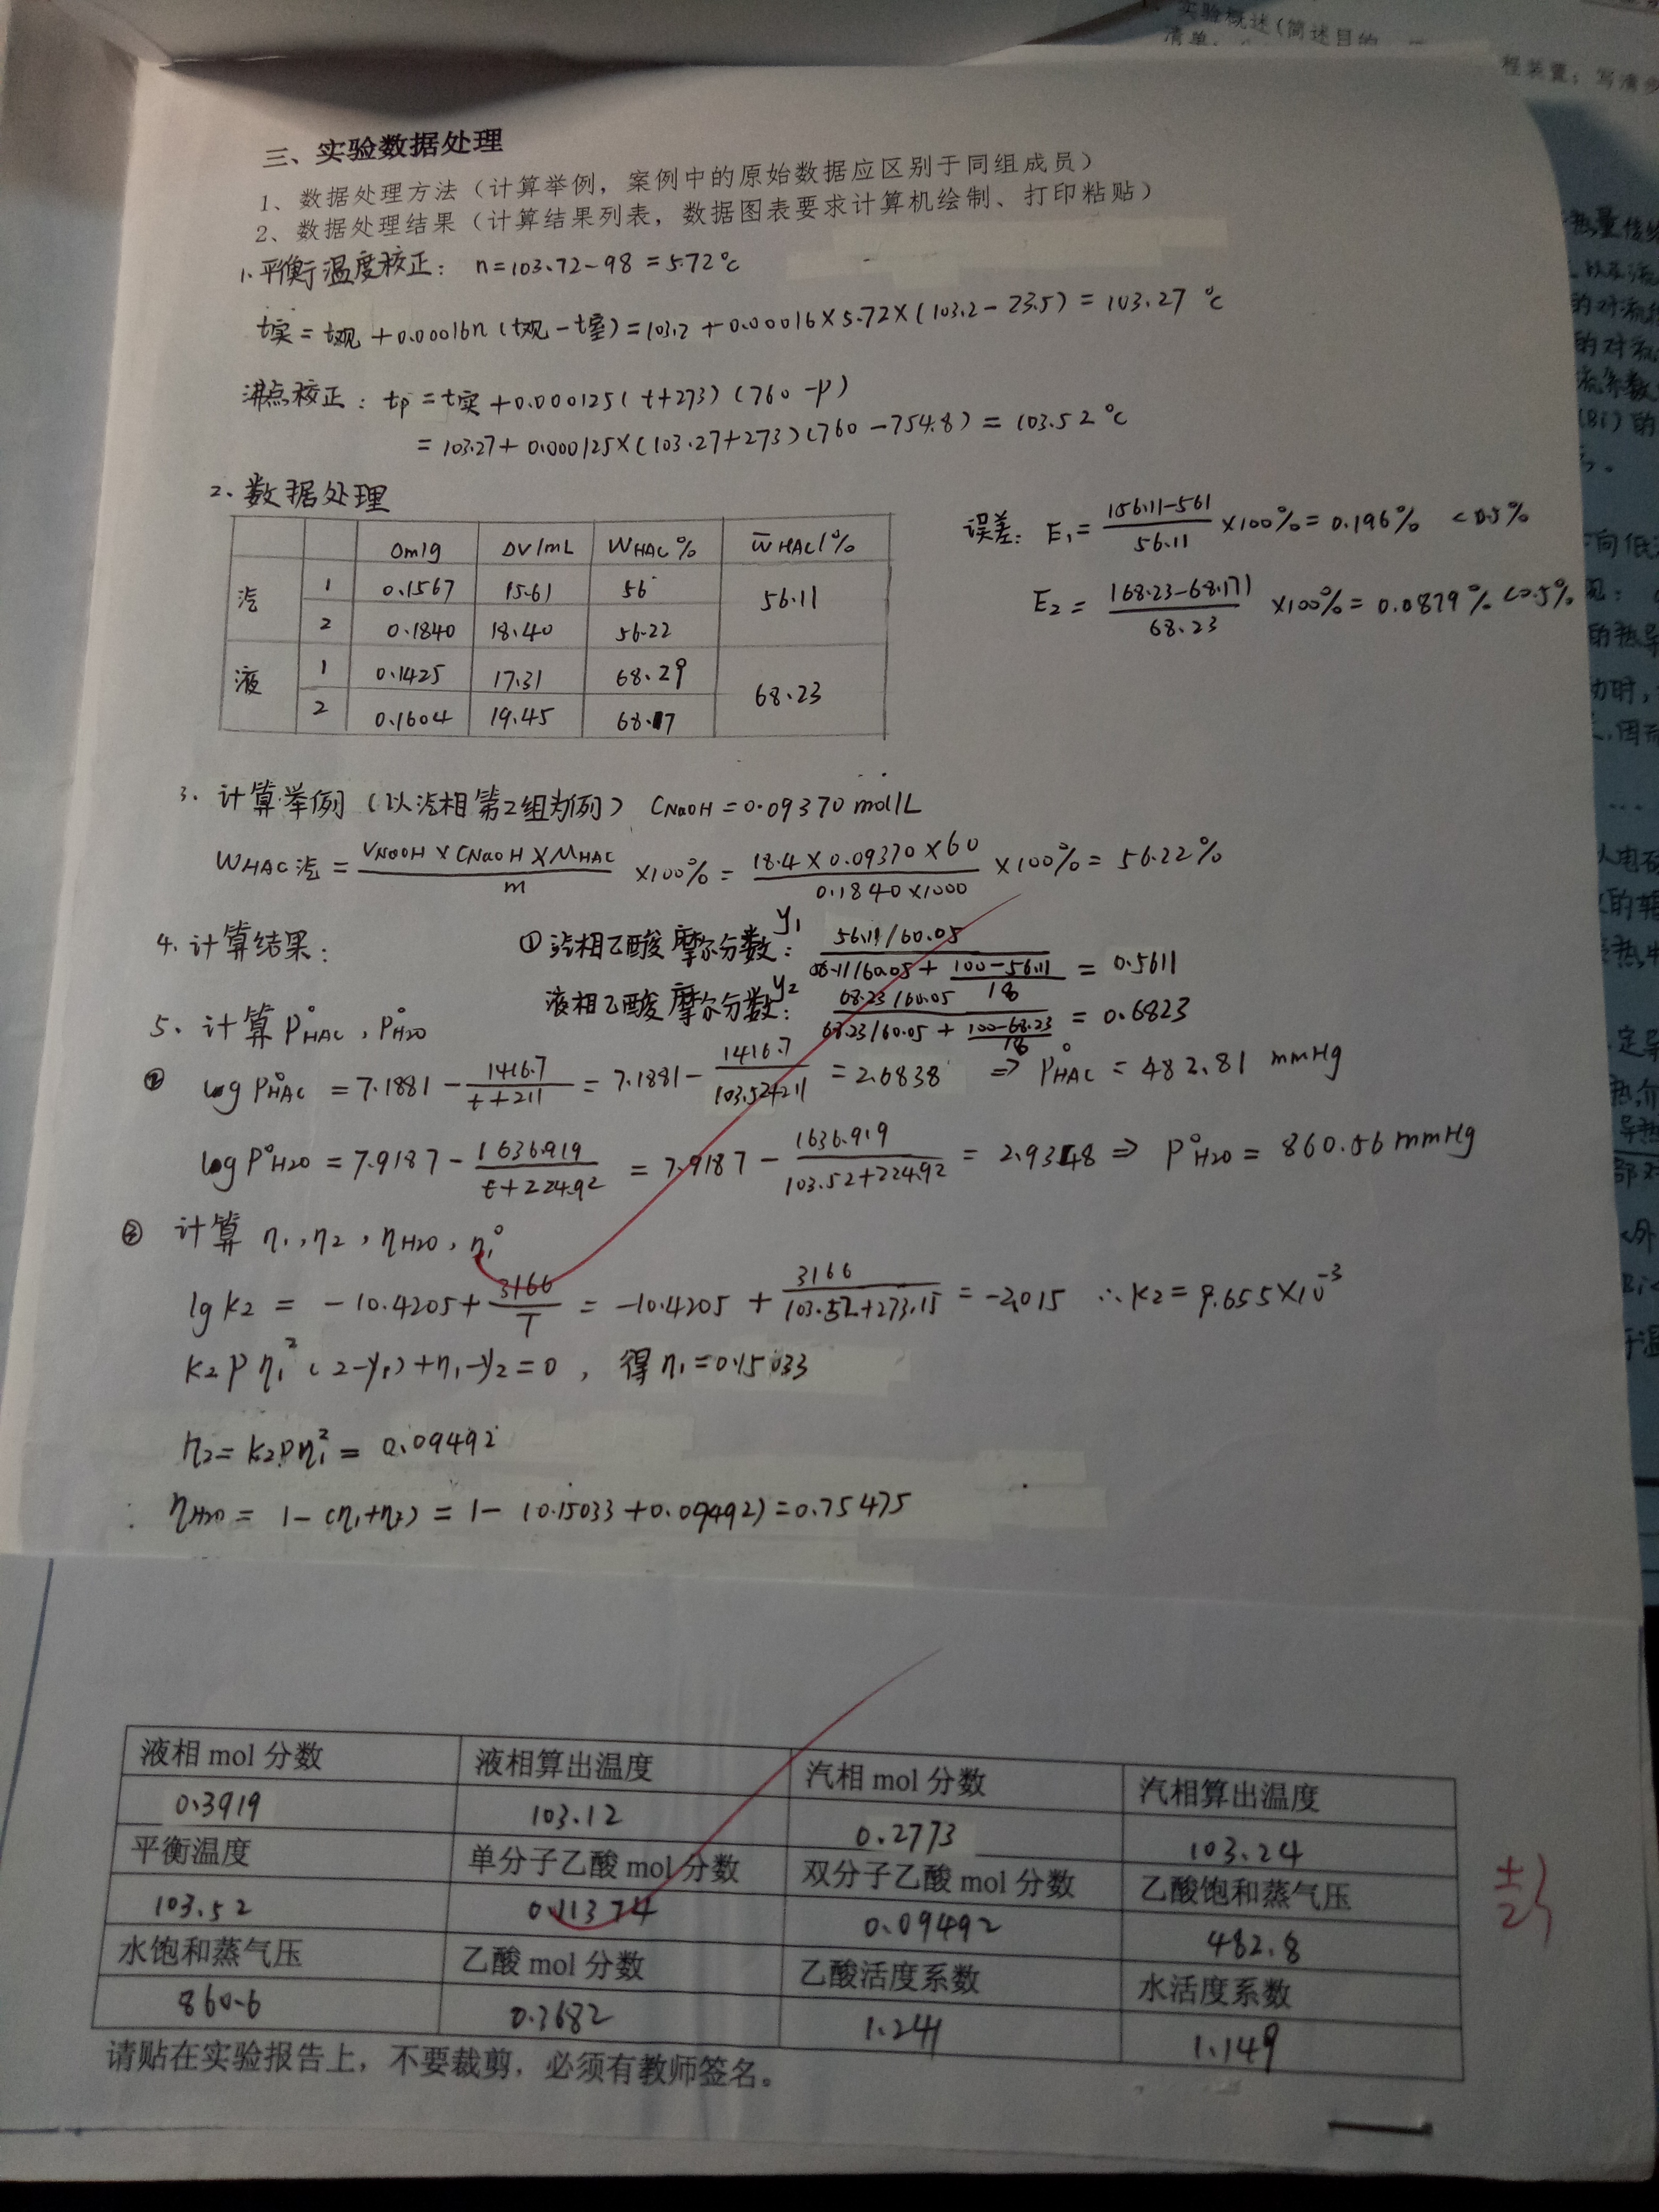 、实验概述(简述目的
清单
程装置;写清
三、实验数据处理
1、数据处理方法(计算举例,案例中的原始数据应区别于同组成员)
2、数据处理结果(计算结果列表,数据图表要求计算机绘制、打印粘贴)
1.平衡温度校正: n=103.72-98=5.72℃
t实=t观+0.00016n(t观-t室)=103.2+0.00016×5.72×(103.2-23.5)=103.27 ℃
沸点校正: tp=t实+0.000125(t+273)(760-P)
=103.27+0.000125×(103.27+273)(760-754.8)=103.52℃
2.数据处理
Δm/g ΔV/mL WHAC% W̄HAC/%
汽 1 0.1567 15.61 56 56.11
2 0.1840 18.40 56.22
液 1 0.1425 17.31 68.29 68.23
2 0.1604 19.45 68.17
误差: E1=|56.11-56|/56.11×100%=0.196% <0.5%
E2=|68.23-68.17|/68.23×100%=0.0879%<0.5%
3.计算举例(以汽相第2组为例) CNaOH=0.09370mol/L
WHAC汽=VNaOH×CNaOH×MHAC/m×100%=18.4×0.09370×60/0.1840×1000×100%=56.22%
4.计算结果: ①汽相乙酸摩尔分数y1: 56.11/60.05/56.11/60.05+100-56.11/18=0.5611
液相乙酸摩尔分数y2: 68.23/60.05/68.23/60.05+100-68.23/18=0.6823
5.计算P°HAC,P°H2O
② log P°HAC=7.1881-1416.7/t+211=7.1881-1416.7/103.52+211=2.6838 ⇒P°HAC=482.81 mmHg
log P°H2O=7.9187-1636.919/t+224.92=7.9187-1636.919/103.52+224.92=2.9348⇒P°H2O=860.56mmHg
③ 计算 η1,η2,ηH2O,η1°
lgK2=-10.4205+3166/T=-10.4205+3166/103.52+273.15=-2.015 ∴K2=9.655×10⁻³
K2Pη1²(2-y1)+η1-y2=0,得η1=0.15033
η2=K2Pη1²=0.09492
ηH2O=1-(η1+η2)=1-(0.15033+0.09492)=0.75475
液相mol分数 液相算出温度 汽相mol分数 汽相算出温度
0.3919 103.12 0.2773 103.24
平衡温度 单分子乙酸mol分数 双分子乙酸mol分数 乙酸饱和蒸气压
103.52 0.11374 0.09492 482.8
水饱和蒸气压 乙酸mol分数 乙酸活度系数 水活度系数
860.6 0.3682 1.241 1.149
请贴在实验报告上,不要裁剪,必须有教师签名。